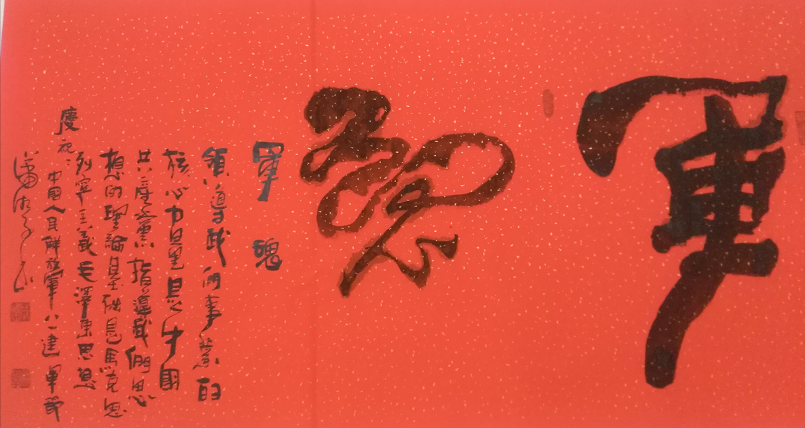 軍魂
軍魂
領導我們事業的
核心力量是中國
共產黨指導我們思
想的理論基礎是馬克思
列寧主義毛澤東思想
慶祝：
中國人民解放軍八一建軍節
瀟湘子